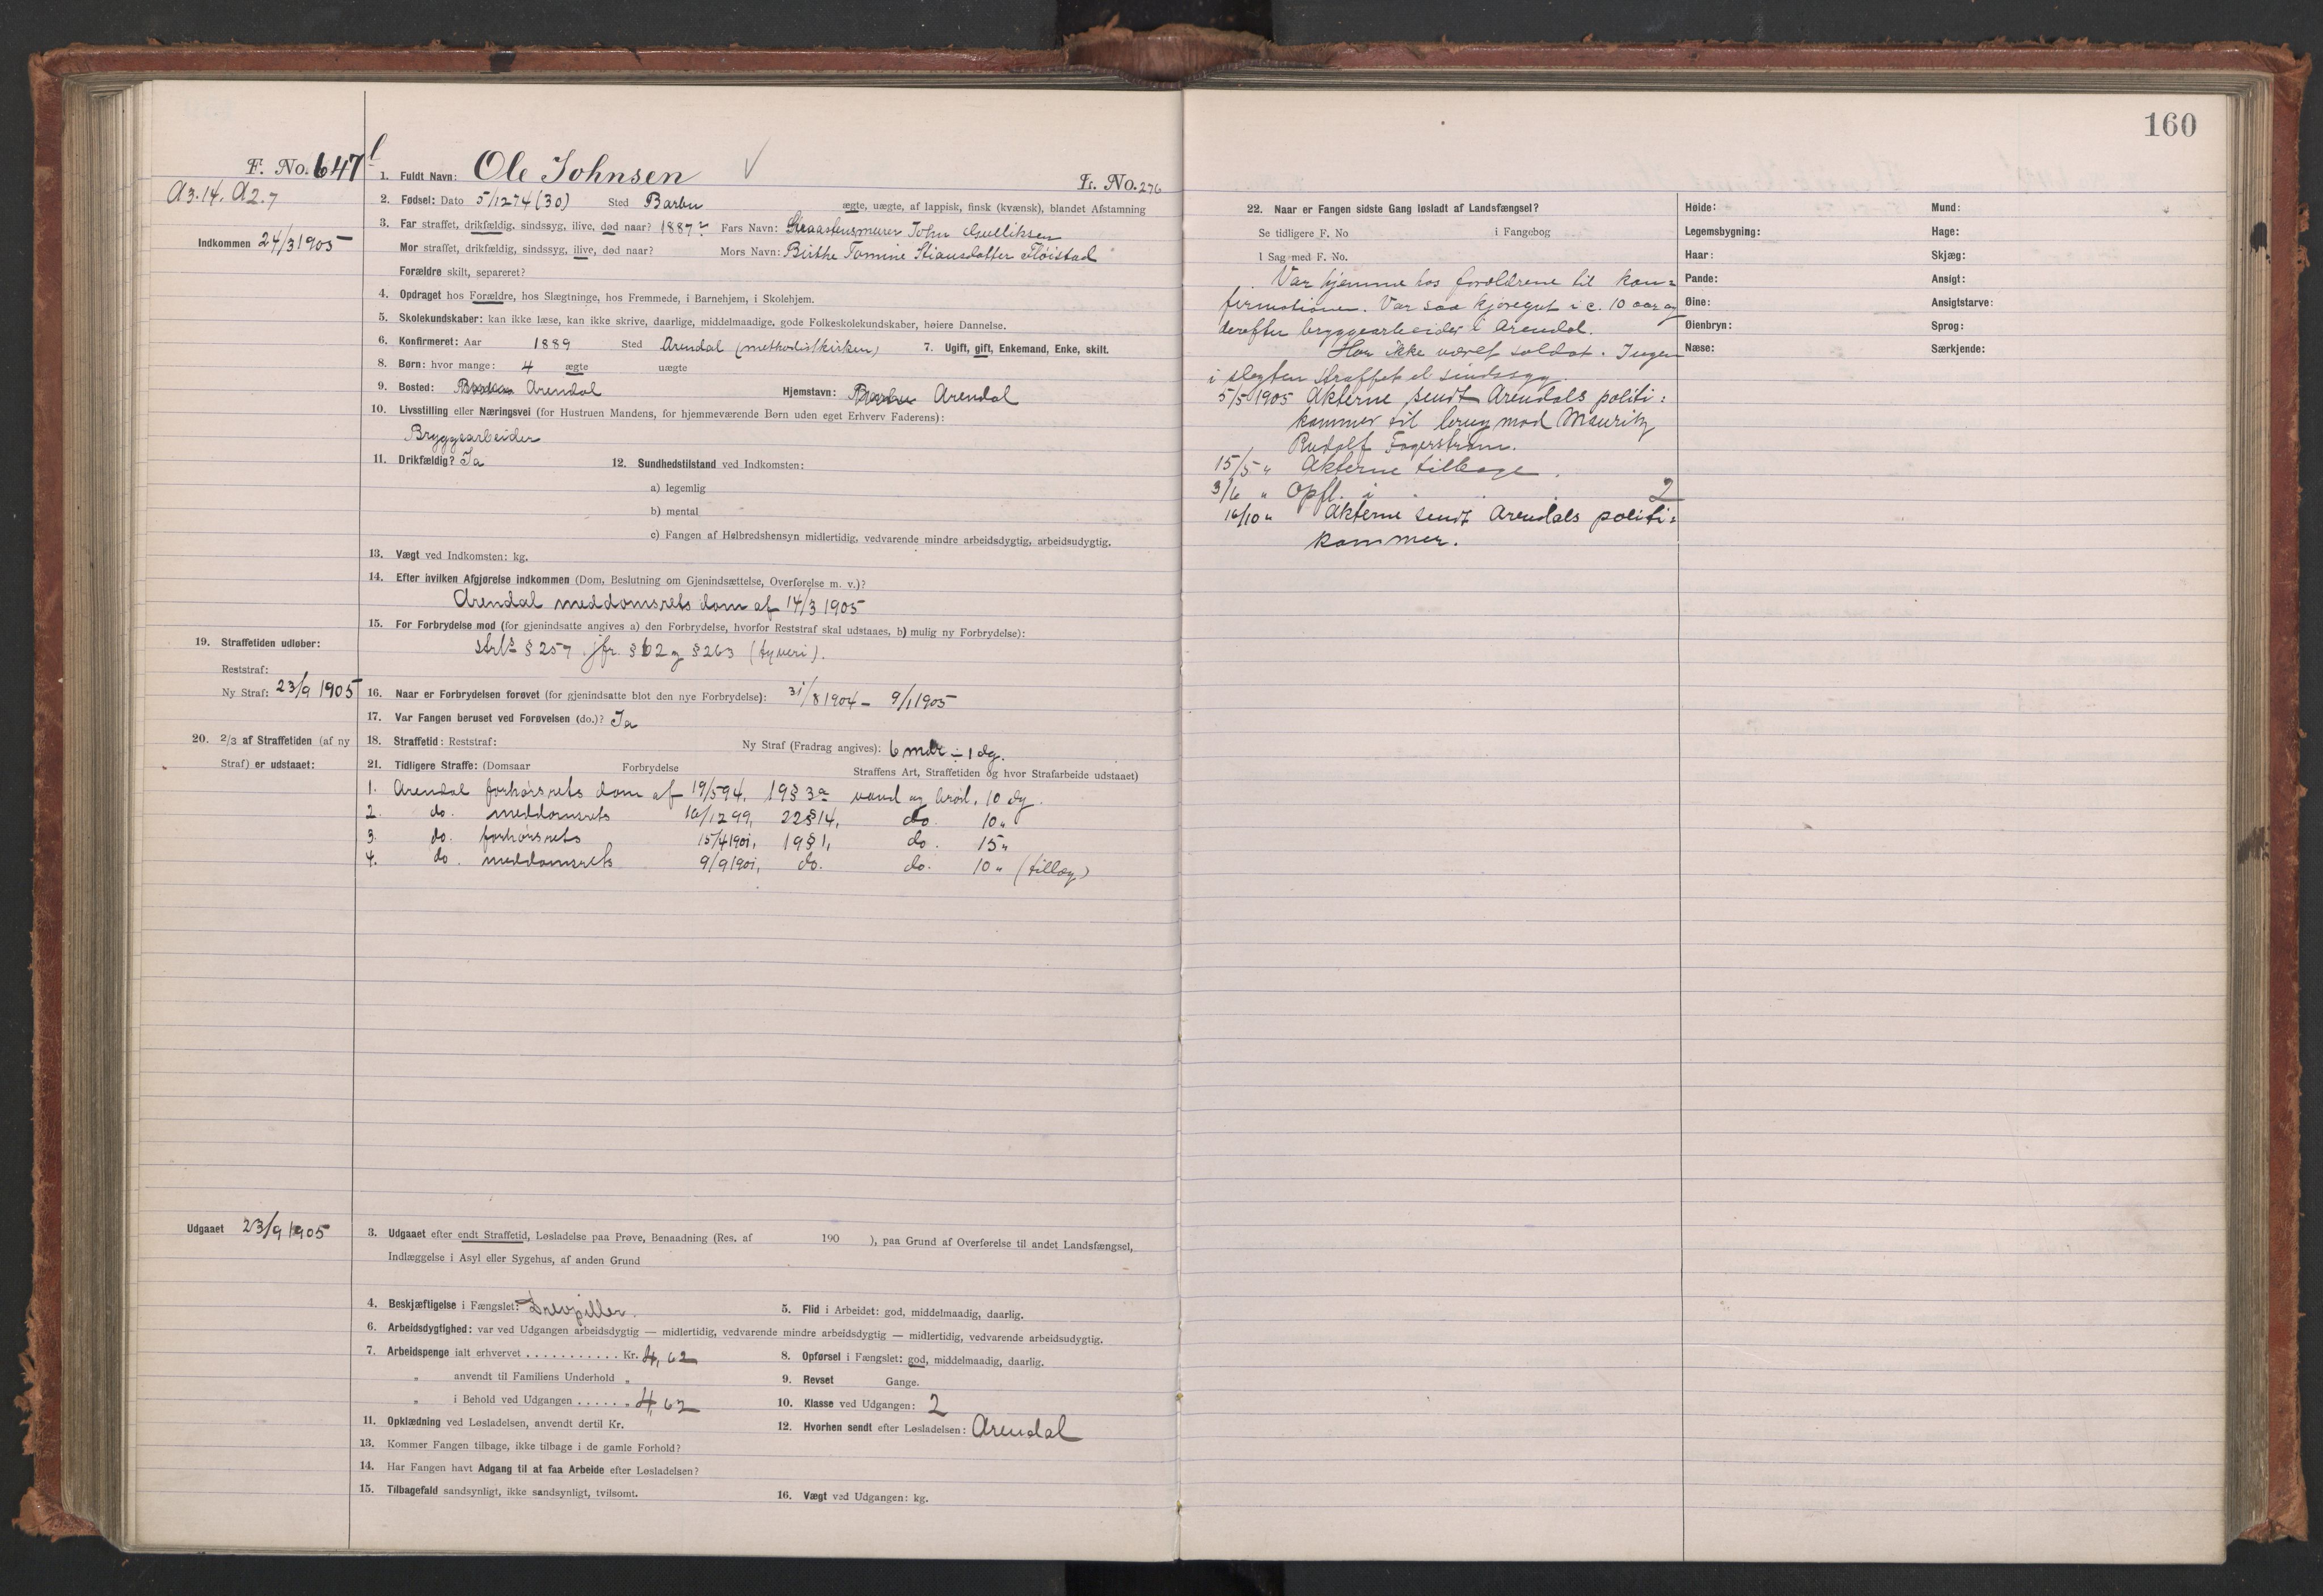 160
F. No. 647
A3.14. A2.7
Indkommen 24/3 1905
1. Fuldt Navn: Ole Johnsen
Fr. No. 276
2. Fødsel: Dato 5/12 74 (30) Sted Barbu ægte, uægte, af lappisk, finsk (kvænsk), blandet Afstamning
3. Far straffet, drikfældig, sindssyg, ilive, død naar? 1887 Fars Navn: John Gulliksen
Mor straffet, drikfældig, sindssyg, ilive, død naar? Mors Navn: Birthe Tomine Stiansdatter Fløistad
Forældre skilt, separeret?
4. Opdraget hos Forældre, hos Slægtninge, hos Fremmede, i Barnehjem, i Skolehjem.
5. Skolekundskaber: kan ikke læse, kan ikke skrive, daarlige, middelmaadige, gode Folkeskolekundskaber, høiere Dannelse.
6. Konfirmeret: Aar 1889 Sted Arendal (methodistkirken) 7. Ugift, gift, Enkemand, Enke, skilt.
8. Børn: hvor mange: 4 ægte uægte
9. Bosted: Arendal Hjemstavn: Barbu Arendal
10. Livsstilling eller Næringsvei (for Hustruen Mandens, for hjemmeværende Børn uden eget Erhverv Faderens):
Bryggearbeider
11. Drikfældig? Ja 12. Sundhedstilstand ved Indkomsten:
a) legemlig
b) mental
c) Fangen af Helbredshensyn midlertidig, vedvarende mindre arbeidsdygtig, arbeidsudygtig.
13. Vægt ved Indkomsten: kg.
14. Efter hvilken Afgjørelse indkommen (Dom, Beslutning om Gjenindsættelse, Overførelse m. v.)?
Arendal meddomsrets dom af 14/3 1905
15. For Forbrydelse mod (for gjenindsatte angives a) den Forbrydelse, hvorfor Reststraf skal udstaaes, b) mulig ny Forbrydelse):
§ 257 jfr. § 62 og § 263 (tyveri).
19. Straffetiden udløber:
Reststraf:
Ny Straf: 23/9 1905
16. Naar er Forbrydelsen forøvet (for gjenindsatte blot den nye Forbrydelse): 31/8 1904 – 9/1 1905
17. Var Fangen beruset ved Forøvelsen (do.)? Ja
20. 2/3 af Straffetiden (af ny
Straf) er udstaaet:
18. Straffetid: Reststraf: Ny Straf (Fradrag angives): 6 mdr ÷ 1 dg.
21. Tidligere Straffe: (Domsaar Forbrydelse Straffens Art, Straffetiden og hvor Strafarbeide udstaaet)
1. Arendal forhørsrets dom af 19/5 94, 19 § 3a vand og brød, 10 dg.
2. do. meddomsrets 16/12 99, 22 § 14, do. 10 "
3. do. forhørsrets 15/4 1901, 19 § 1, do. 15 "
4. do. meddomsrets 9/9 1901, do. do. 10 " (tillæg)
Udgaaet 23/9 1905
3. Udgaaet efter endt Straffetid, Løsladelse paa Prøve, Benaadning (Res. af 190 ), paa Grund af Overførelse til andet Landsfængsel,
Indlæggelse i Asyl eller Sygehus, af anden Grund
4. Beskjæftigelse i Fængslet: Drevpiller. 5. Flid i Arbeidet: god, middelmaadig, daarlig.
6. Arbeidsdygtighed: var ved Udgangen arbeidsdygtig — midlertidig, vedvarende mindre arbeidsdygtig — midlertidig, vedvarende arbeidsudygtig.
7. Arbeidspenge ialt erhvervet . . . . . . . . . . . Kr. 4,62 8. Opførsel i Fængslet: god, middelmaadig, daarlig.
" anvendt til Familiens Underhold " 9. Revset Gange.
" i Behold ved Udgangen . . . . . . " 4,62 10. Klasse ved Udgangen: 2
11. Opklædning ved Løsladelsen, anvendt dertil Kr. 12. Hvorhen sendt efter Løsladelsen: Arendal
13. Kommer Fangen tilbage, ikke tilbage i de gamle Forhold?
14. Har Fangen havt Adgang til at faa Arbeide efter Løsladelsen?
15. Tilbagefald sandsynligt, ikke sandsynligt, tvilsomt. 16. Vægt ved Udgangen: kg.
22. Naar er Fangen sidste Gang løsladt af Landsfængsel?
Se tidligere F. No i Fangebog
I Sag med F. No.
Var hjemme hos forældrene til kon=
firmationen. Var saa kjøregut i c. 10 aar og
derefter bryggearbeider i Arendal.
Har ikke været soldat. Ingen
i slegten straffet el sindssyg.
5/5 1905 Akterne sendt Arendals politi=
kammer til brug mod Mauritz
Rudolf Fagerstrøm.
15/5 " Akterne tilbage.
3/6 " Opfl. i . . . 2
16/10 " Akterne sendt Arendals politi=
kammer.
Høide: Mund:
Legemsbygning: Hage:
Haar: Skjæg:
Pande: Ansigt:
Øine: Ansigtstarve:
Øienbryn: Sprog:
Næse: Særkjende: